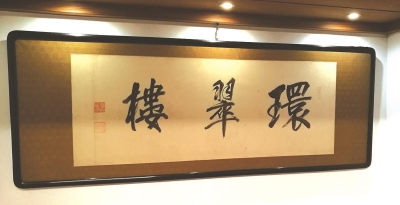 環翠樓